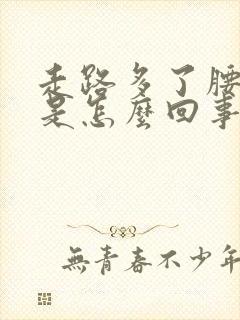 走路多了腰
是怎麼回事
無青春不少年